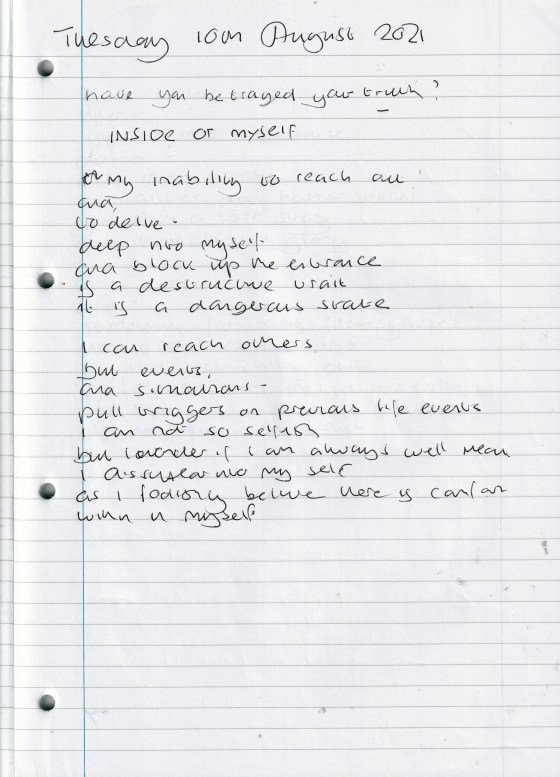 Tuesday 10th August 2021
have you betrayed your truth?
INSIDE OF MYSELF
my inability to reach out
and,
to delve -
deep into myself
and block up the entrance
is a destructive trait
it is a dangerous state
I can reach others
but events,
and situations -
pull triggers on previous life events
I am not so selfish
but wonder if I am always well mean
I my self
as I believe there is comfort
within myself